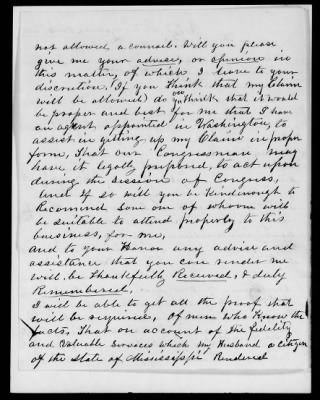 not allowed, a council. Will you please
give me your advise, or opinion in
this matter, of which I leave to your
discretion. If you think that my Claim
will be allowed, do you think that it would
be proper and best for me that I have
an agent appointed in Washington, to
assist in gitting up my Claim in proper
form, That our Congressman may
have it legally prepared, to act upon
during the session of Congress,
And if so will you be Kind enough to
Recommend some one of whom will
be suitable to attend properly to this
business, for me,
And to your Honor any advise and
assistance that you can render me
will be thankfully Received, & duly
Remembered.
I will be able to get all the proof that
will be required, of men who Know the
facts, That on account of the fidelity
and Valuable Services which my Husband a citizen
of the State of Mississippi Rendered